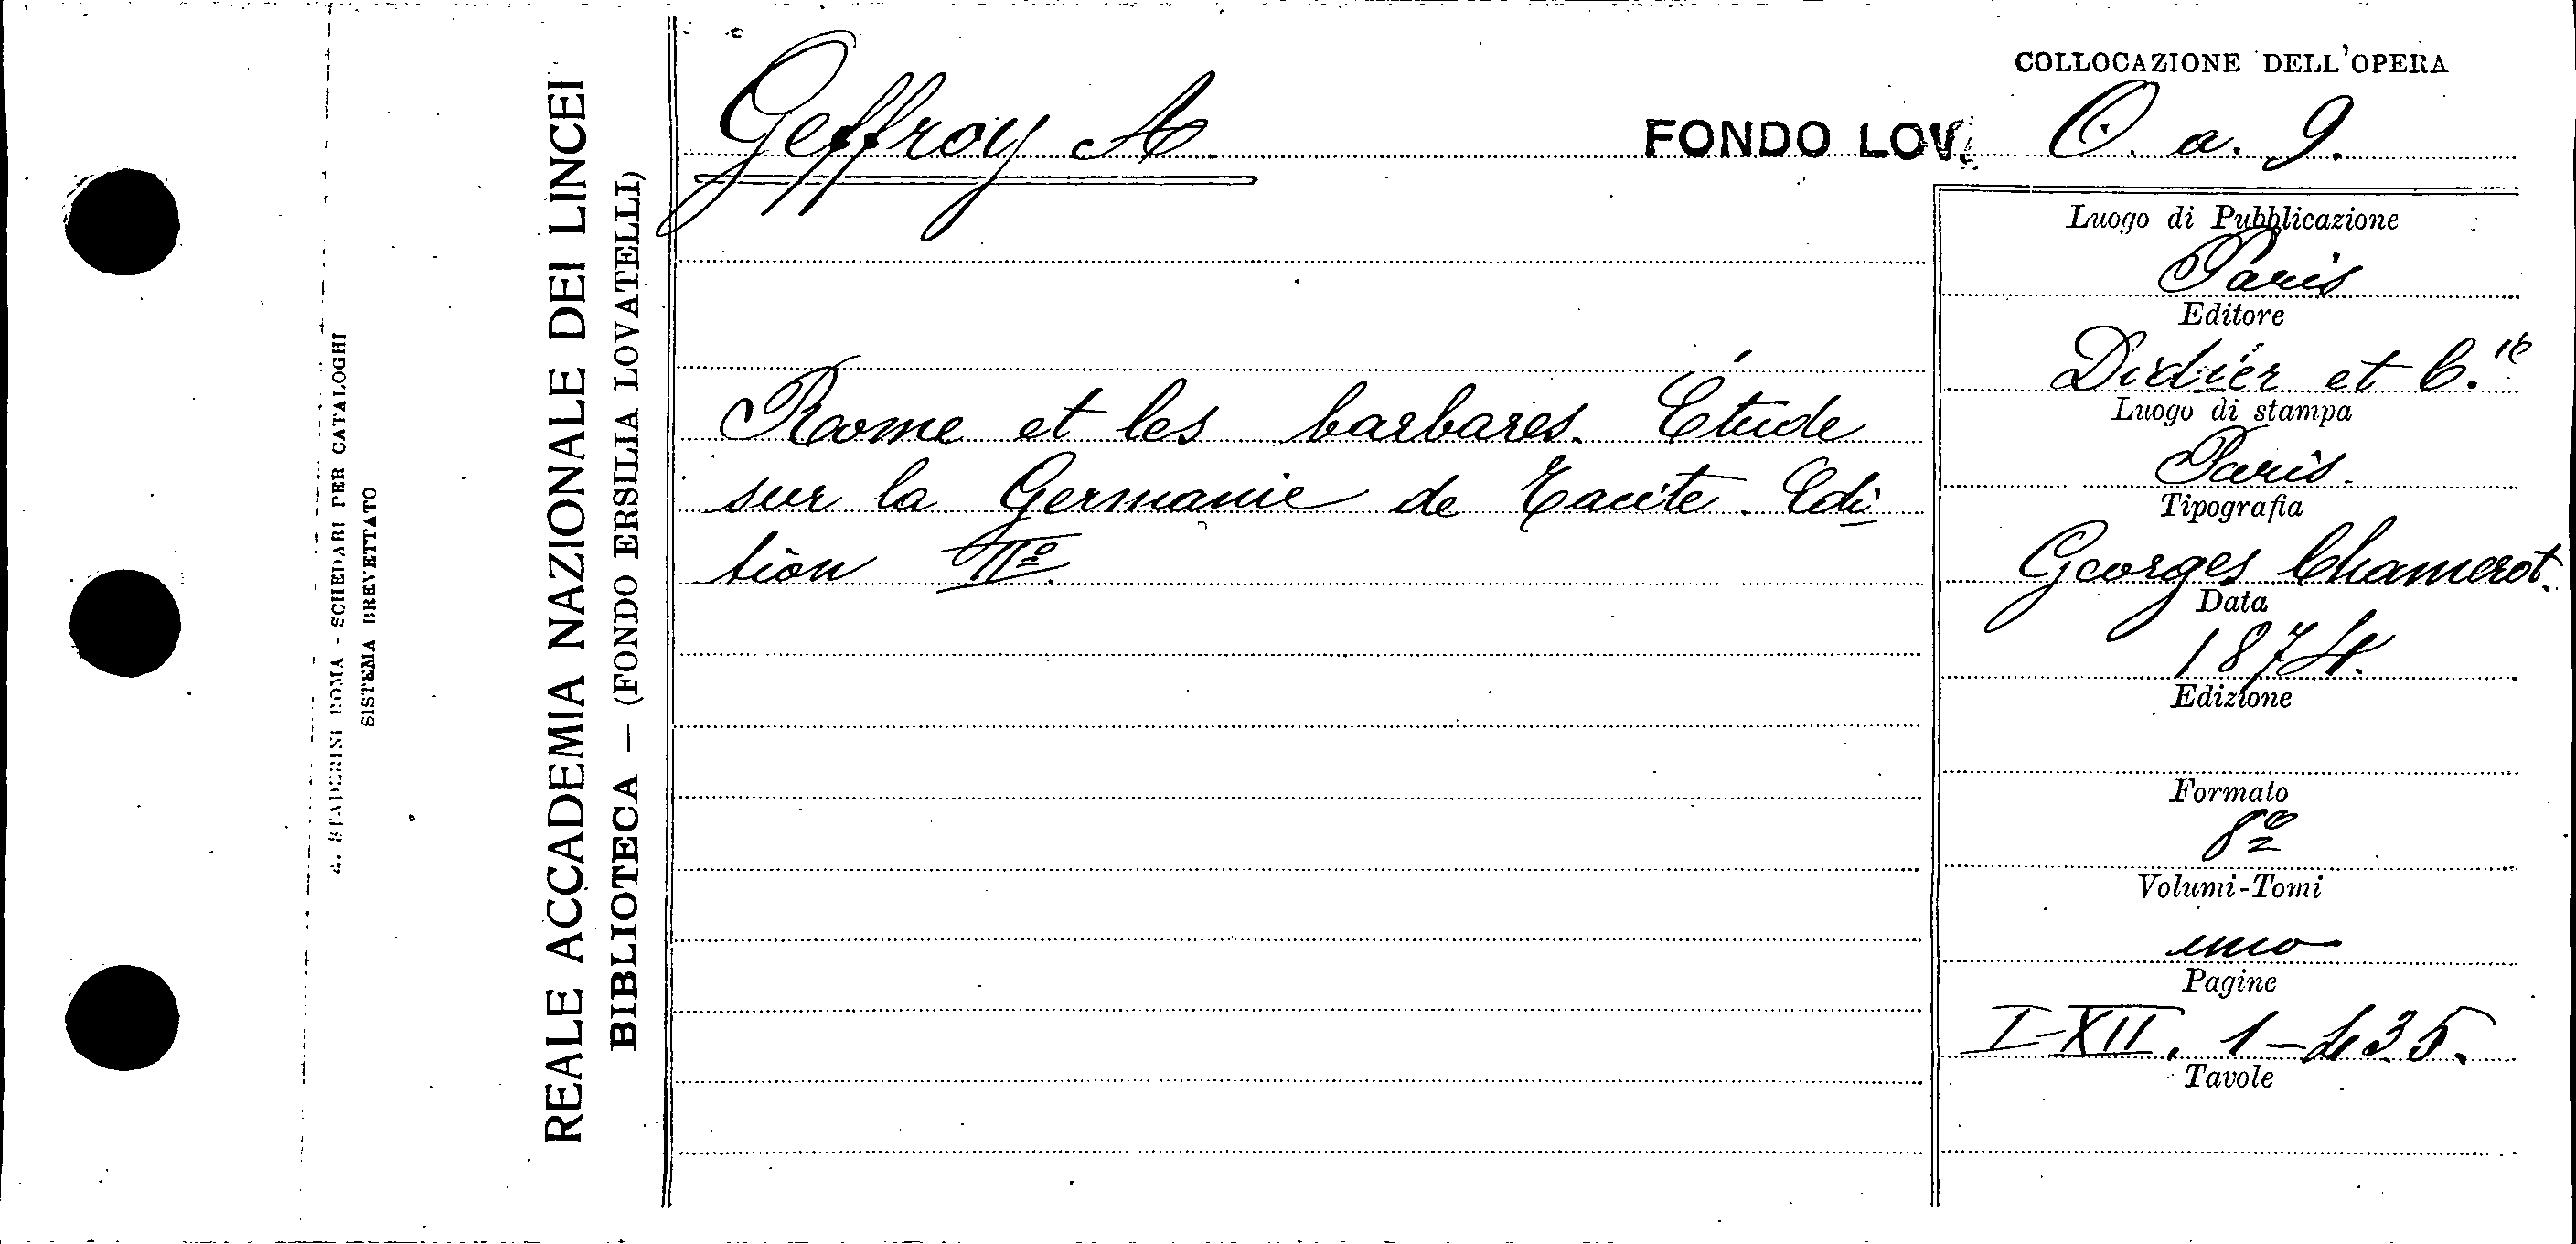 A. STADERINI ROMA - SCHEDARI PER CATALOGHI
SISTEMA BREVETTATO
REALE ACCADEMIA NAZIONALE DEI LINCEI
BIBLIOTECA — (FONDO ERSILIA LOVATELLI)
Geffroy A.
Rome et les barbares. Étude
sur la Germanie de Tacite. Edi
tion IIª.
COLLOCAZIONE DELL'OPERA
FONDO LOV. O. a. 9.
Luogo di Pubblicazione
Paris
Editore
Didier et C.ie
Luogo di stampa
Paris.
Tipografia
Georges Chamerot.
Data
1874.
Edizione
Formato
8º
Volumi-Tomi
uno
Pagine
I-XII. 1-435.
Tavole